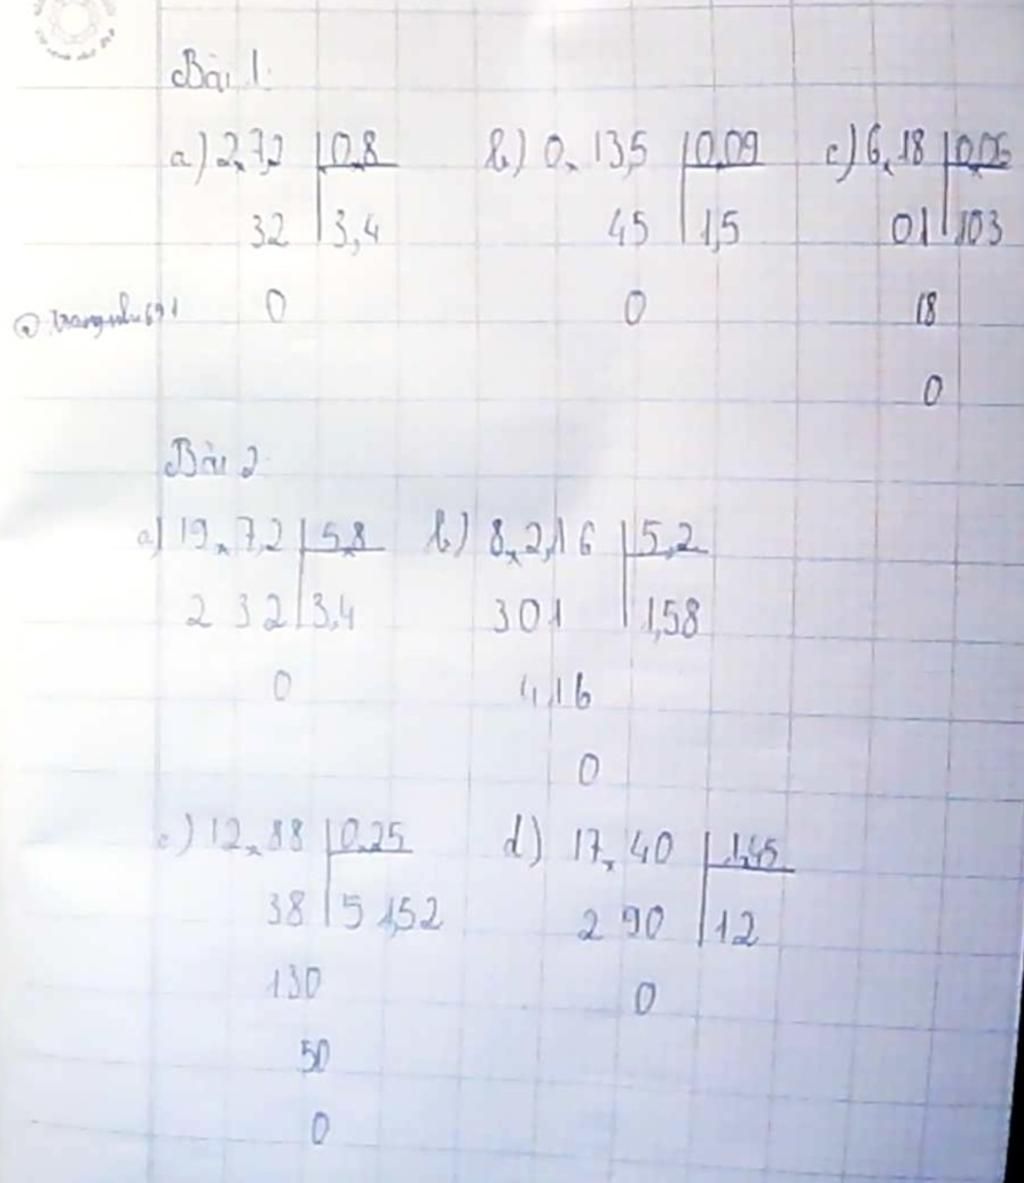 Bài 1:
a) 2,7,2 0,8 b) 0,13,5 0,09 c) 6,18 0,06
32 3,4 45 1,5 01 103
0 0 18
0
Bài 2
a) 19,7,2 5,8 b) 8,2,16 5,2
2 32 3,4 301 1,58
0 4,16
0
c) 12,88 0,25 d) 17,40 1,45
38 51,52 2 90 12
130 0
50
0